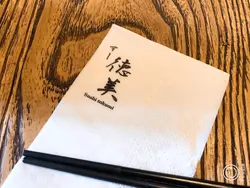 すし
徳美
Sushi tokumi